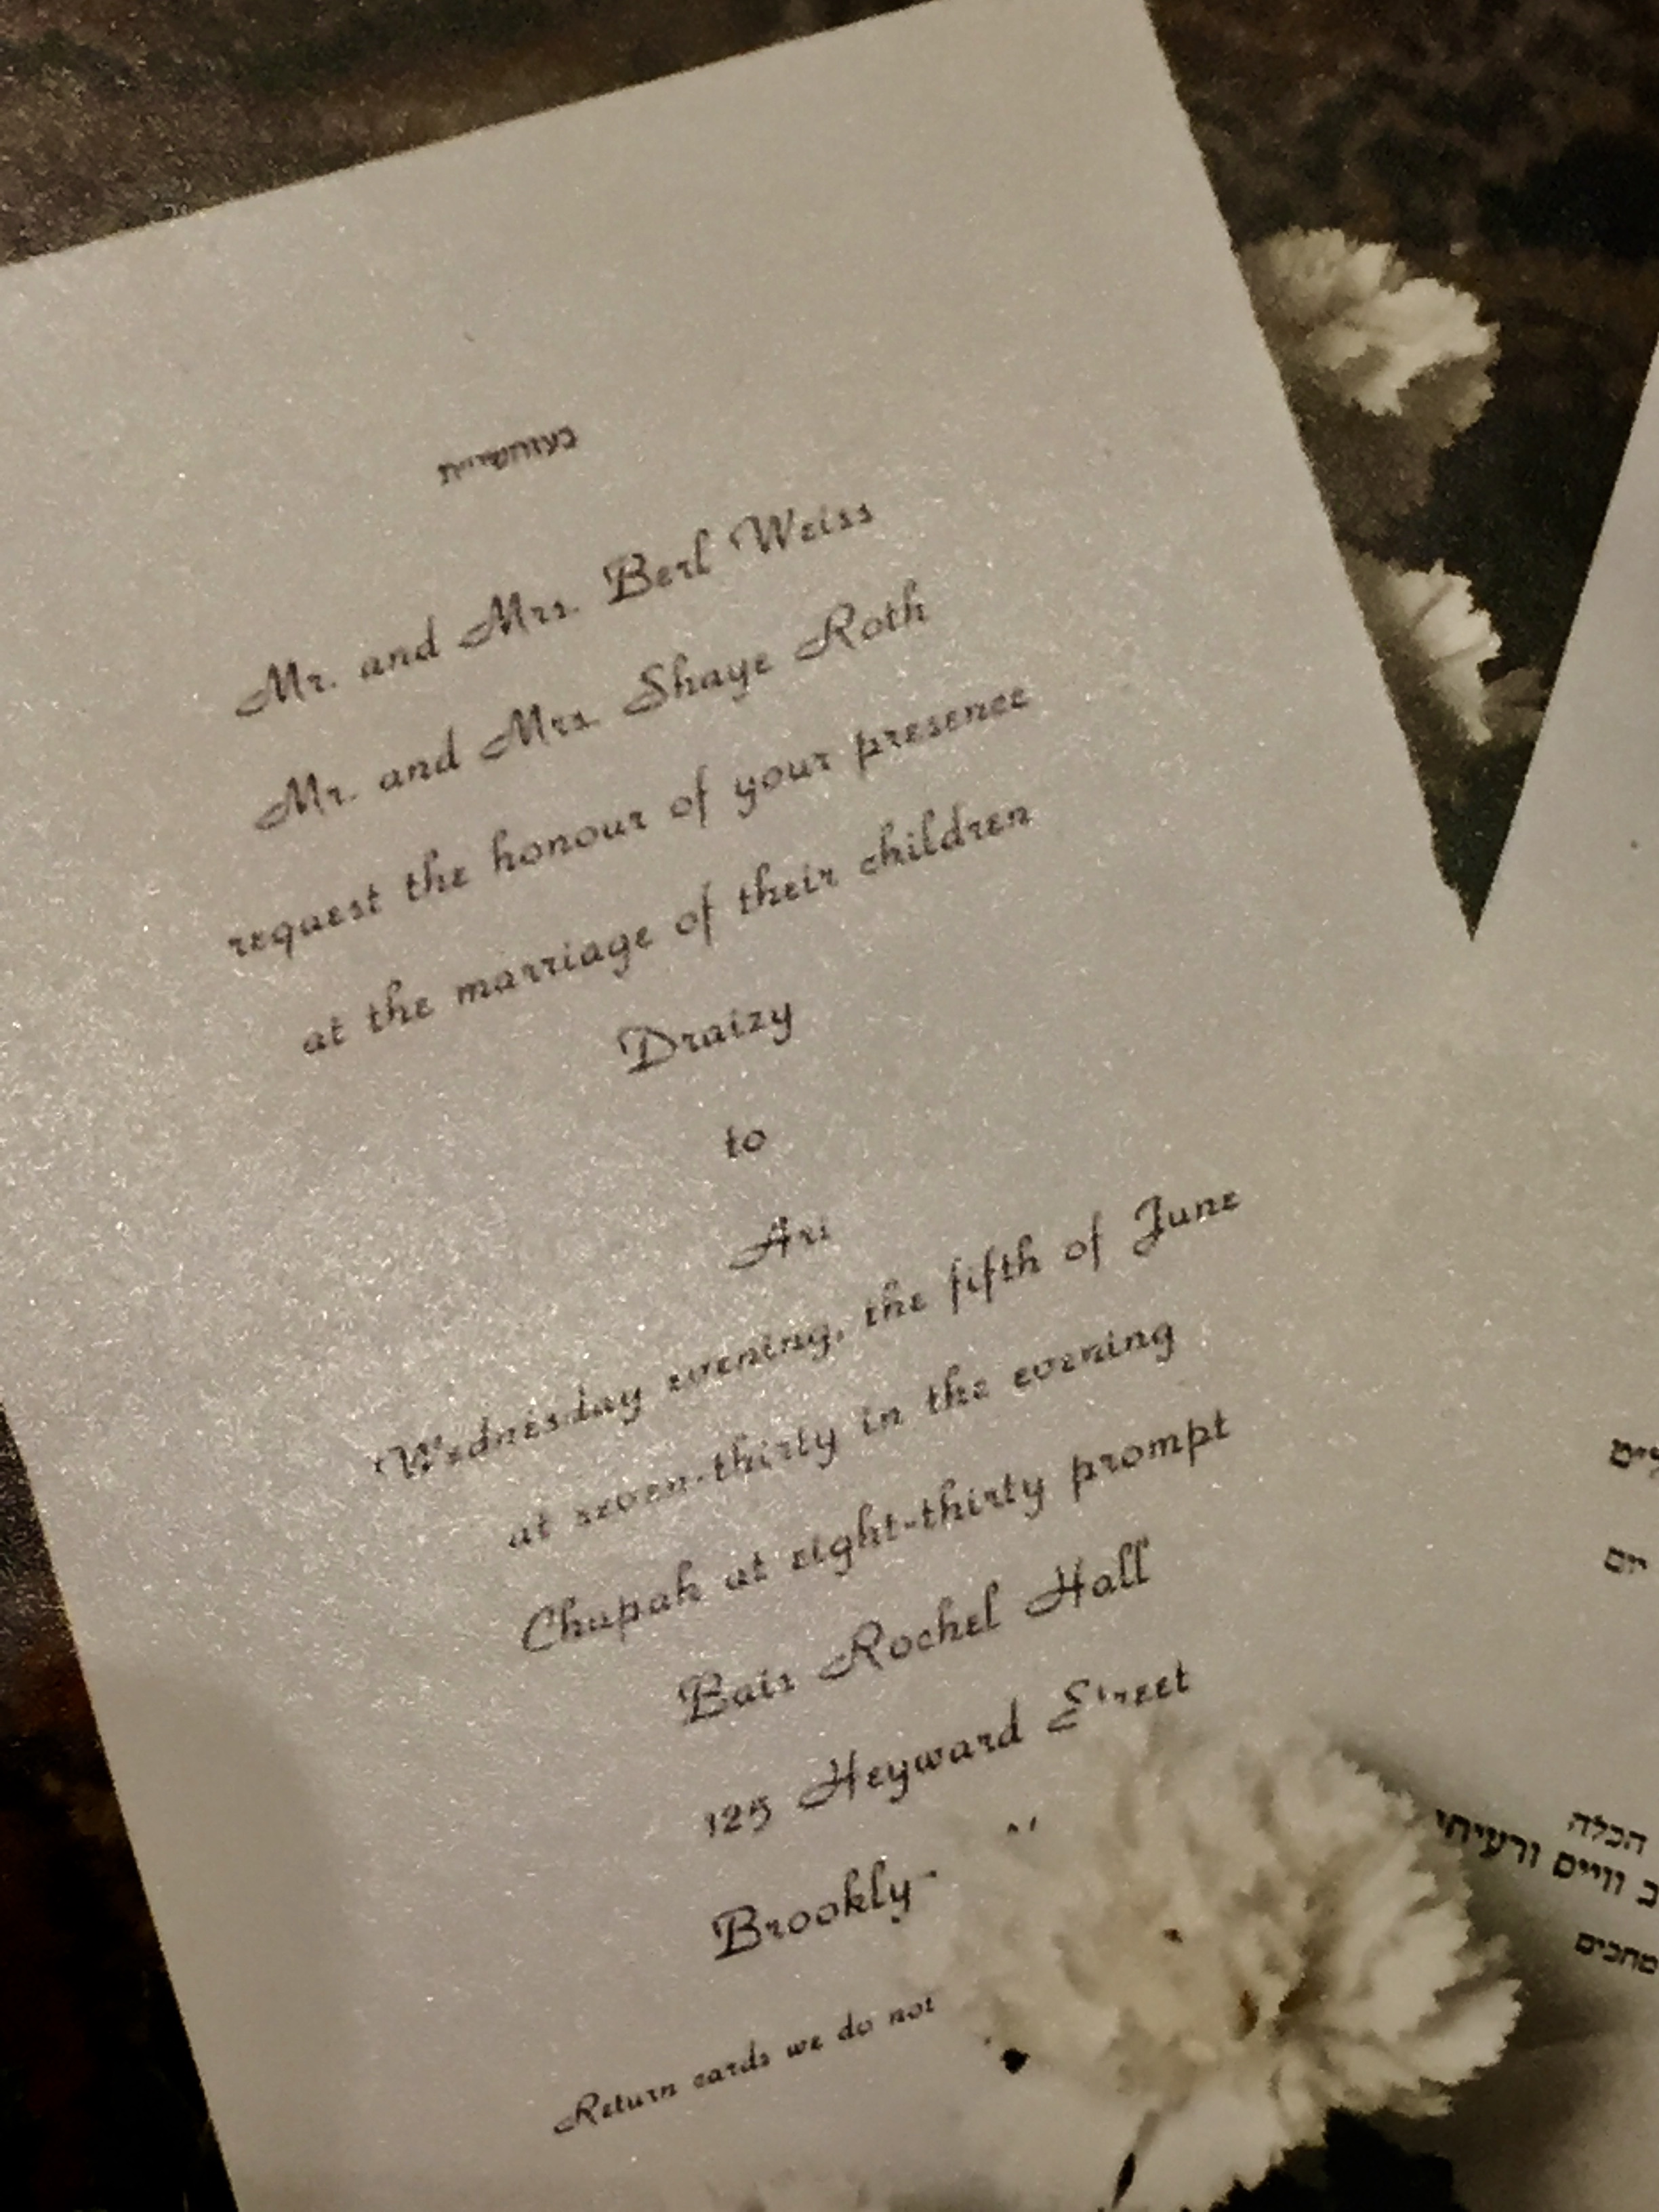 Mr. and Mrs. Berl Weiss
Mr. and Mrs. Shaye Roth
request the honour of your presence
at the marriage of their children
Draizy
to
Ari
Wednesday evening, the fifth of June
at seven-thirty in the evening
Chupah at eight-thirty prompt
Bais Rochel Hall
125 Heyward Street
Brookly
Return cards we do not
יום
הכלה
ב ווייס ורעיתי